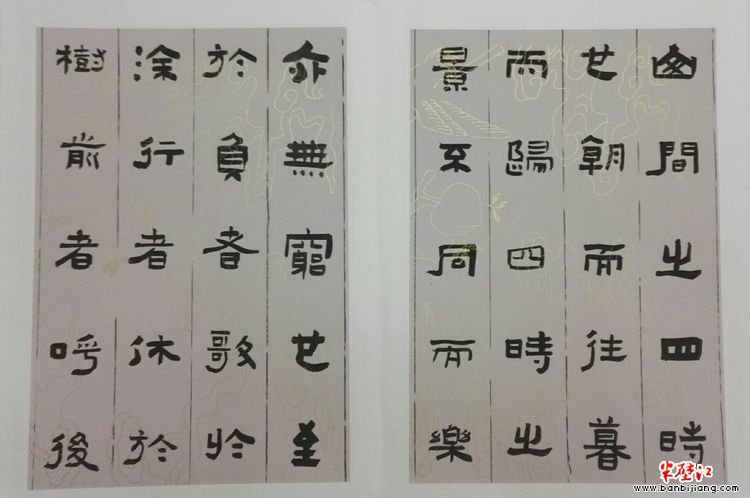 山間之四時
也朝而往暮
而歸四時之
景不同而樂
亦無窮也至
於負者歌於
涂行者休於
樹前者呼後
半壁江
www.banbijiang.com